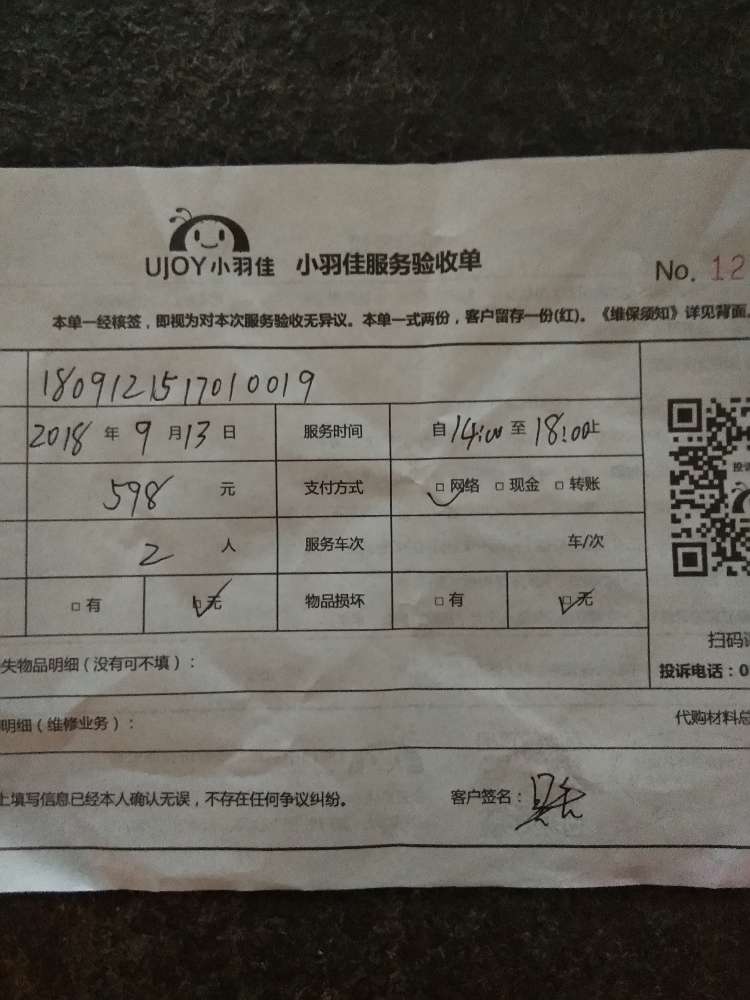 UJOY小羽佳 小羽佳服务验收单 No. 12
本单一经核签，即视为对本次服务验收无异议。本单一式两份，客户留存一份(红)。《维保须知》详见背面。
1809121517010019
2018 年 9 月 13 日 服务时间 自 14:00 至 18:00 止
598 元 支付方式 □ 网络 □ 现金 □ 转账
2 人 服务车次 车/次
□ 有 □ 无 物品损坏 □ 有 □ 无
扫码
失物品明细（没有可不填）： 投诉电话：0
明细（维修业务）： 代购材料总
上填写信息已经本人确认无误，不存在任何争议纠纷。 客户签名：